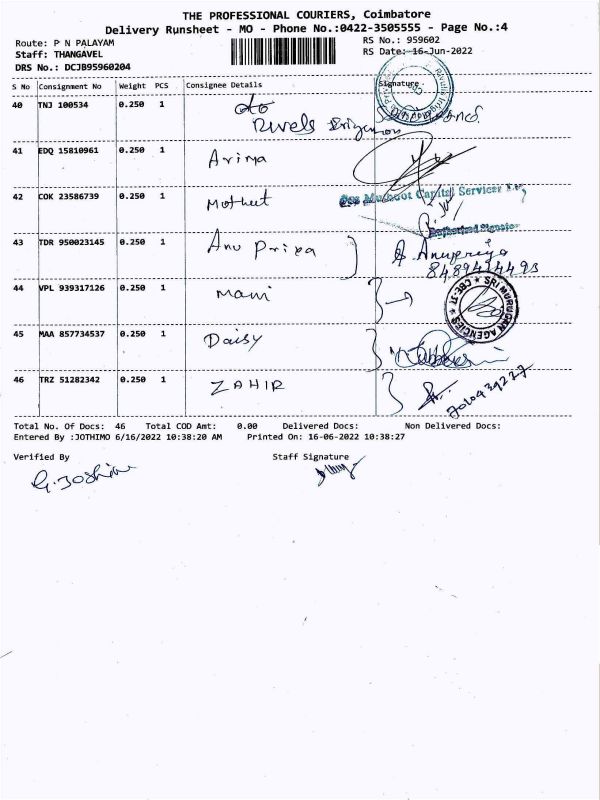 THE PROFESSIONAL COURIERS, Coimbatore
Delivery Runsheet - MO - Phone No.:0422-3505555 - Page No.:4
Route: P N PALAYAM
RS No.: 959602
Staff: THANGAVEL
RS Date: 16-Jun-2022
DRS No.: DCJB95960204
S No Consignment No Weight PCS Consignee Details Signature
40 TNJ 100534 0.250 1
41 EDQ 15810961 0.250 1 Arima
42 COK 23586739 0.250 1 Mothut
For Muthoot Capital Services
Authorised Signator
43 TDR 950023145 0.250 1 Anu Priya
Anupriya
44 VPL 939317126 0.250 1 Mani
SRI MURUGAN AGENCIES ★ CBE-37 ★
45 MAA 857734537 0.250 1 Daisy
46 TRZ 51282342 0.250 1 ZAHIR
Total No. Of Docs: 46 Total COD Amt: 0.00 Delivered Docs: Non Delivered Docs:
Entered By :JOTHIMO 6/16/2022 10:38:20 AM Printed On: 16-06-2022 10:38:27
Verified By Staff Signature